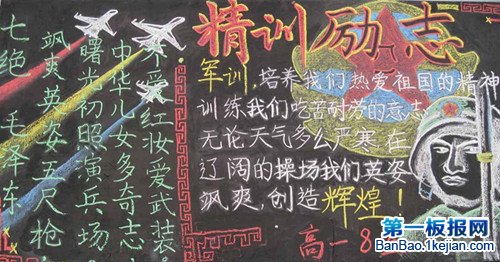 七绝 毛泽东
飒爽英姿五尺枪,
曙光初照演兵场。
中华儿女多奇志
不爱红妆爱武装。
精训励志
军训,培养我们热爱祖国的精神
训练我们吃苦耐劳的意志
无论天气多么严寒在
辽阔的操场我们英姿
飒爽,创造辉煌!
高一8
第一板报网
BanBao.1kejian.com